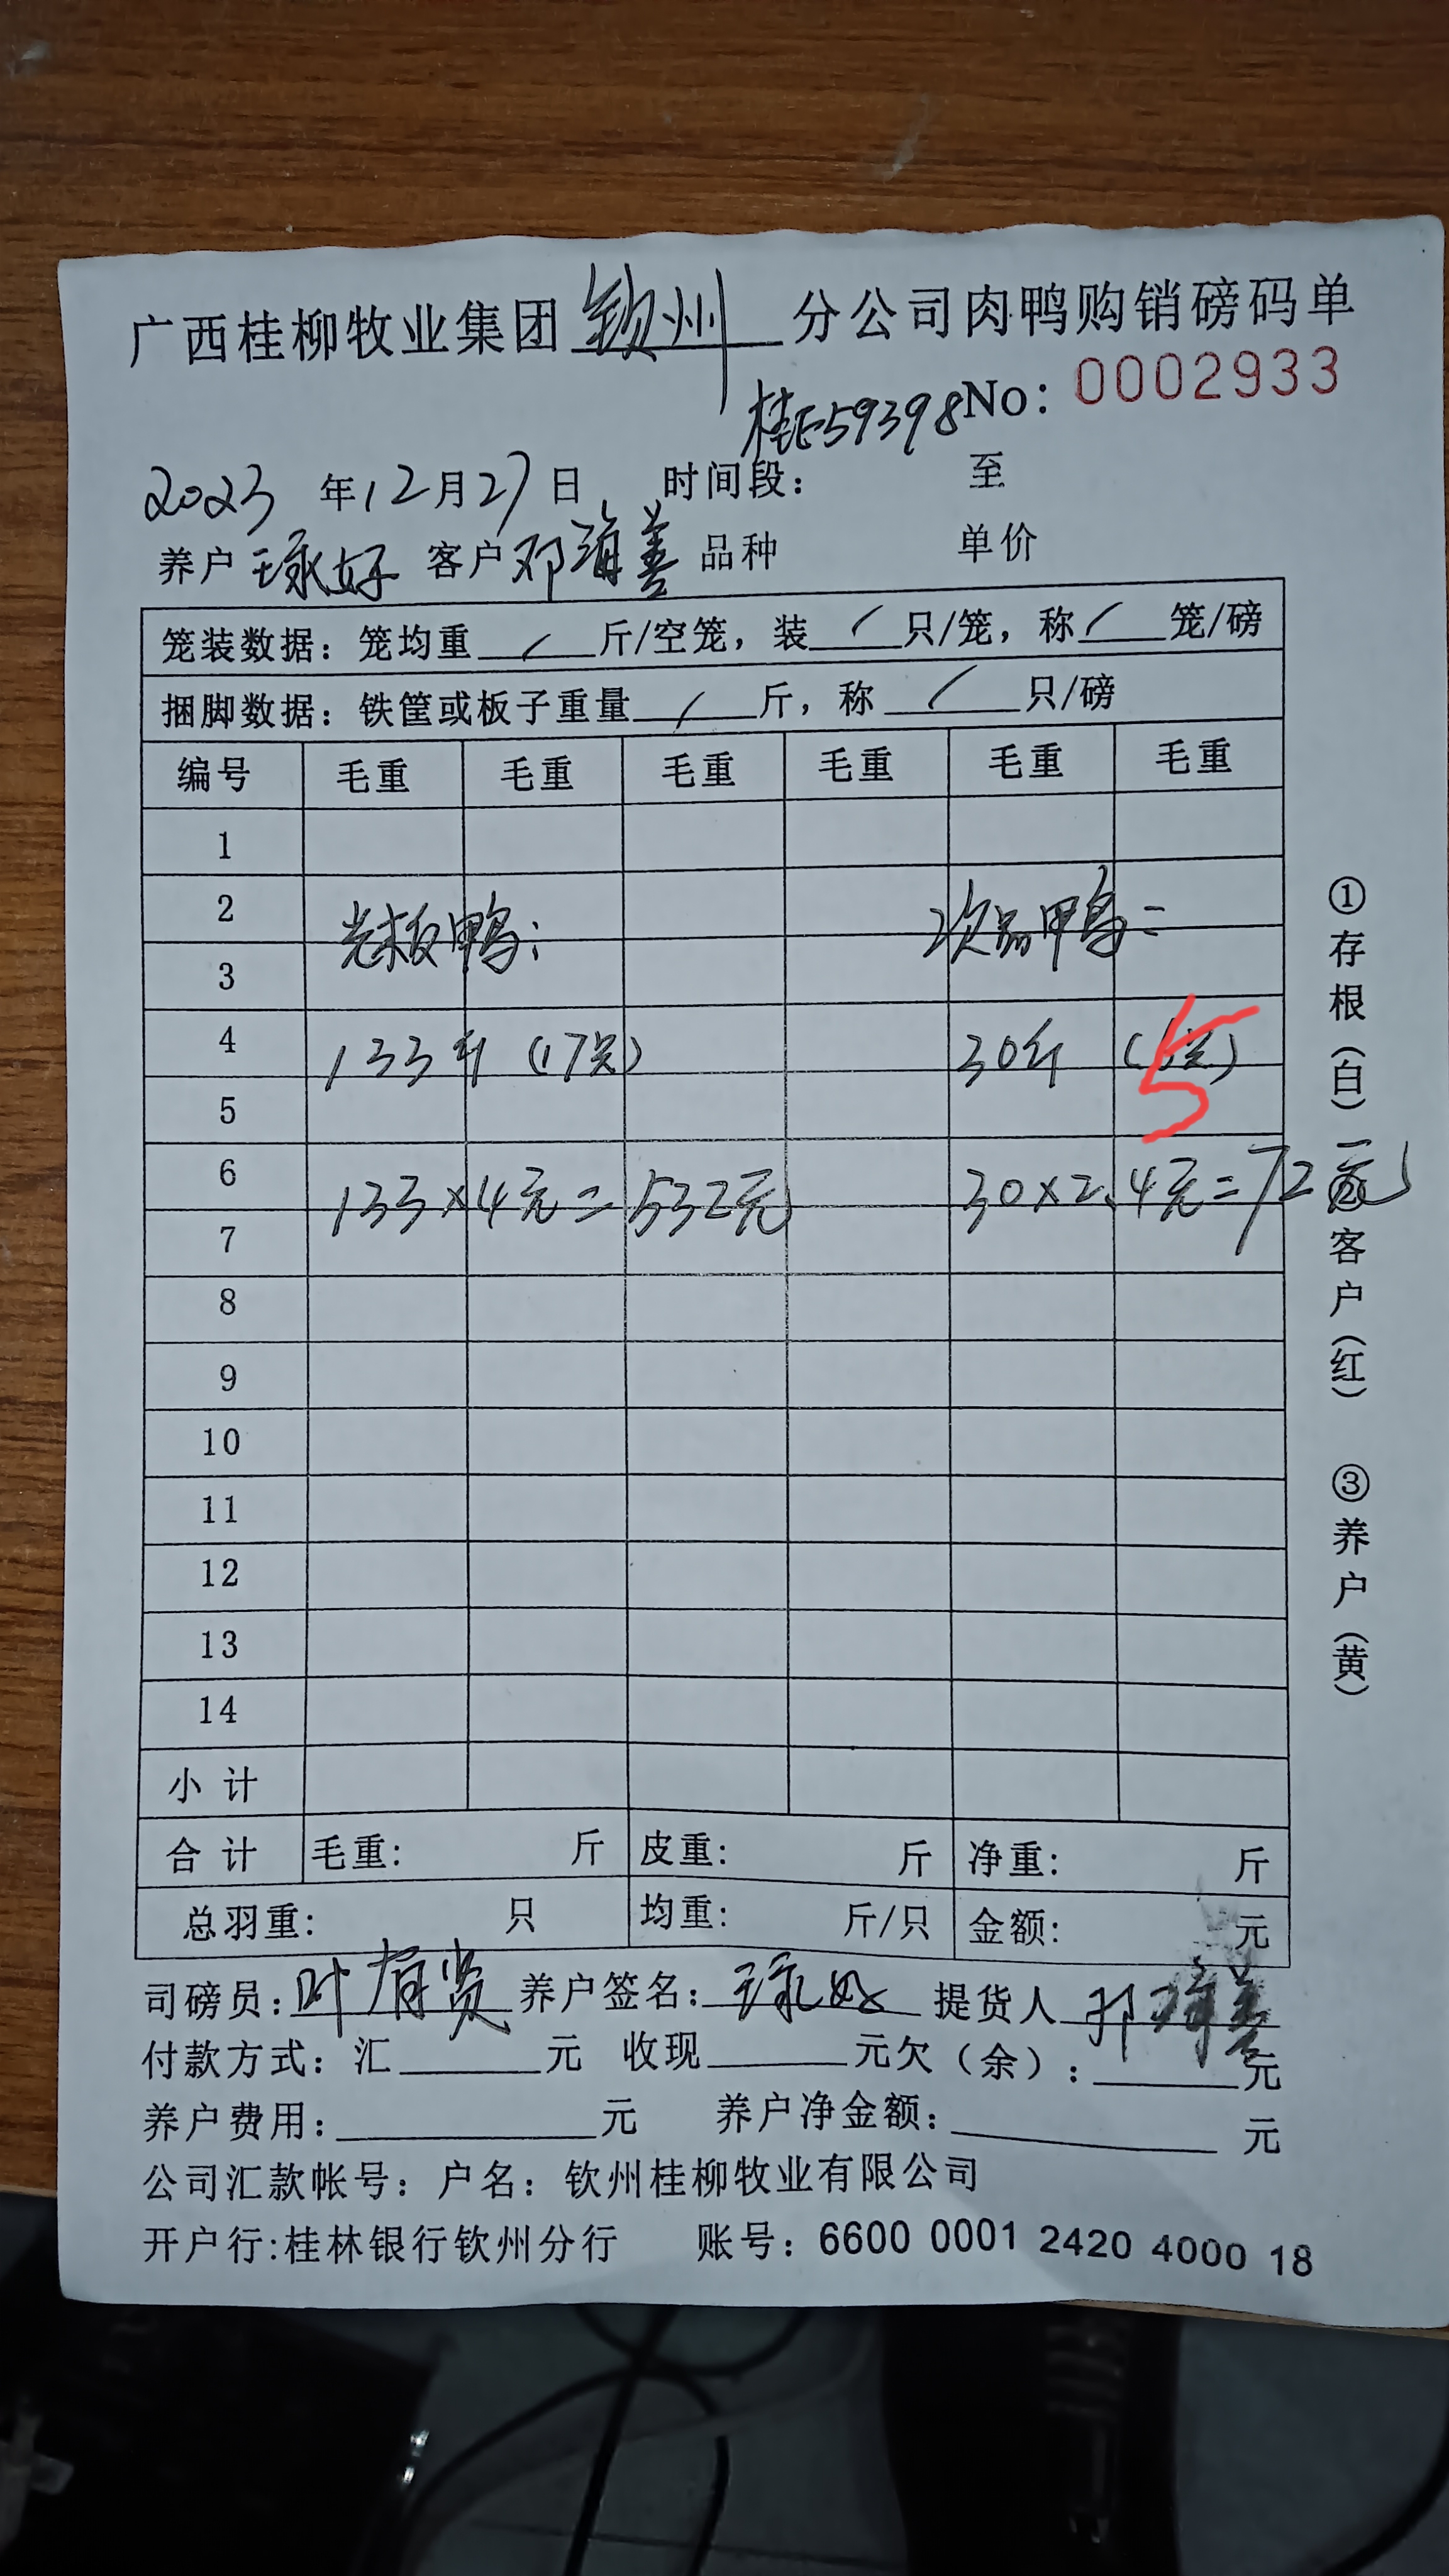 广西桂柳牧业集团钦州分公司肉鸭购销磅码单
桂E59398 No: 0002933
2023年12月27日 时间段: 至
养户 客户邓海善 品种 单价
笼装数据: 笼均重/斤/空笼, 装/只/笼, 称/笼/磅
捆脚数据: 铁筐或板子重量/斤, 称/只/磅
编号 毛重 毛重 毛重 毛重 毛重 毛重
1
2
光板鸭: 次品鸭=
3
4 133斤 (17只) 30斤 (5只)
5
6
133×4元=532元 30×2.4元=72元
7
8
9
10
11
12
13
14
小计
合计 毛重: 斤 皮重: 斤 净重: 斤
总羽重: 只 均重: 斤/只 金额: 元
司磅员: 叶有贤 养户签名: 提货人 邓海善
付款方式: 汇 元 收现 元欠(余): 元
养户费用: 元 养户净金额: 元
公司汇款帐号: 户名: 钦州桂柳牧业有限公司
开户行:桂林银行钦州分行 账号: 6600 0001 2420 4000 18
①存根(白) ②客户(红) ③养户(黄)